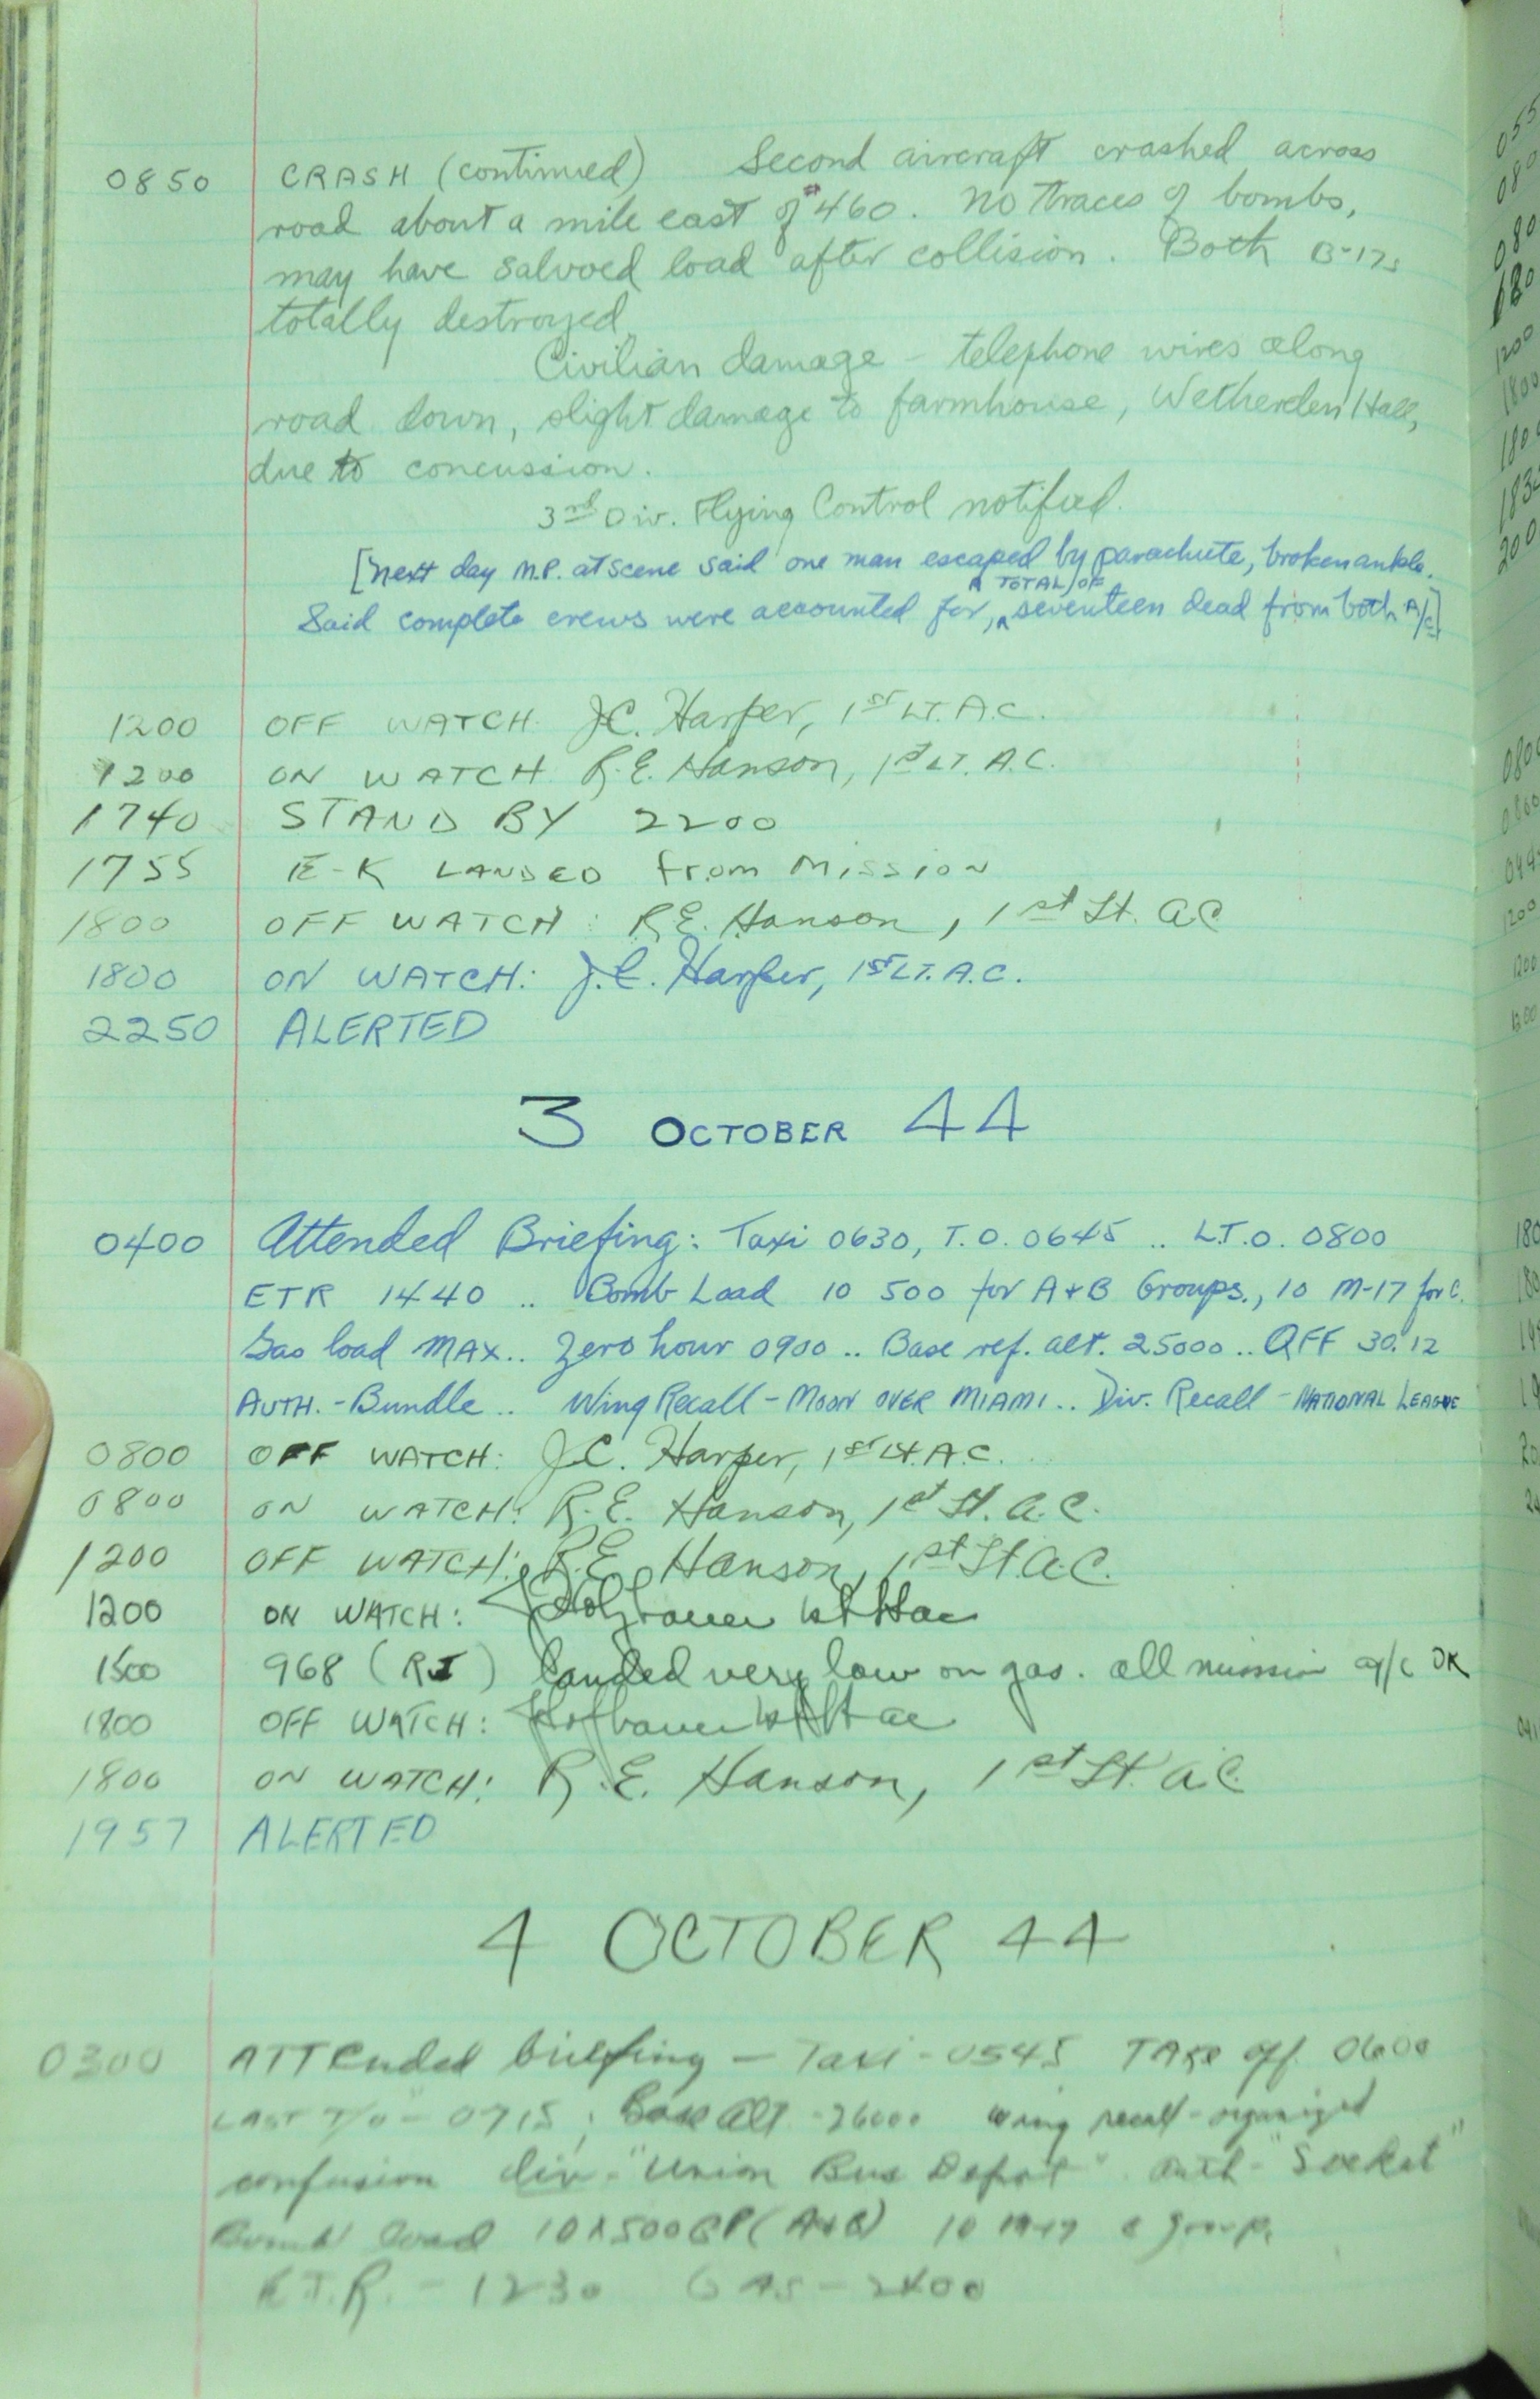 0850 CRASH (continued) Second aircraft crashed across
road about a mile east of #460. No traces of bombs,
may have salvoed load after collision. Both B-17s
totally destroyed.
Civilian damage - telephone wires along
road down, slight damage to farmhouse, Wetherden Hall,
due to concussion.
3rd Div. Flying Control notified.
[Next day M.P. at scene said one man escaped by parachute, broken ankle.
A TOTAL OF
Said complete crews were accounted for, seventeen dead from both A/C]
1200 OFF WATCH J.C. Harper, 1ST LT. A.C.
1200 ON WATCH R.E. Hanson, 1st LT. A.C.
1740 STAND BY 2200
1755 E-K LANDED from Mission
1800 OFF WATCH: R.E. Hanson, 1st Lt. AC
1800 ON WATCH: J.C. Harper, 1ST LT. A.C.
2250 ALERTED
3 OCTOBER 44
0400 Attended Briefing: Taxi 0630, T.O. 0645 .. L.T.O. 0800
ETR 1440 .. Bomb Load 10 500 for A+B Groups., 10 M-17 for C.
Gas load MAX.. Zero hour 0900 .. Base ref. alt. 25000 .. QFF 30.12
AUTH. - Bundle .. Wing Recall - MOON OVER MIAMI .. Div. Recall - NATIONAL LEAGUE
0800 OFF WATCH: J.C. Harper, 1ST Lt. A.C.
0800 ON WATCH: R.E. Hanson, 1st Lt. A.C.
1200 OFF WATCH: R.E. Hanson, 1st Lt. A.C.
1200 ON WATCH: 1st Lt ac
1500 968 (RI) landed very low on gas. all mission a/c OK
1800 OFF WATCH: 1st Lt ac
1800 ON WATCH: R.E. Hanson, 1st Lt. A.C.
1957 ALERTED
4 OCTOBER 44
0300 ATTended briefing - Taxi - 0545 TAKe off 0600
LAST T/O - 0715; Base Alt - 26000 wing recall - organized
confusion div - "Union Bus Depot" Auth - "Socket"
Bomb load 10X500GP (A+B) 10 M-17 C group.
E.T.R. - 1230 GAS - 2400